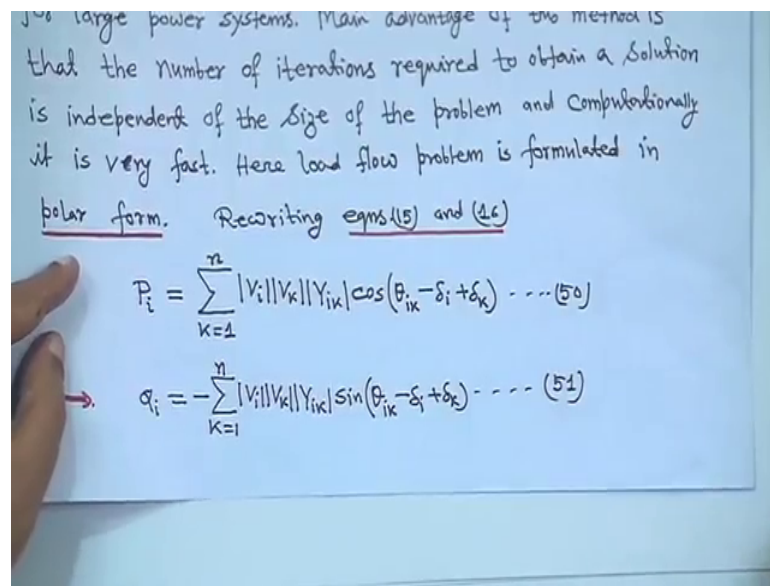 for large power systems. Main advantage of this method is
that the number of iterations required to obtain a solution
is independent of the size of the problem and computationally
it is very fast. Here load flow problem is formulated in
polar form. Rewriting eqns.(15) and (16)
n
Pi = ∑ |Vi||Vk||Yik| cos(θik - δi + δk) - - - -(50)
K=1
n
→. Qi = -∑ |Vi||Vk||Yik| sin(θik - δi + δk) - - - - - (51)
K=1